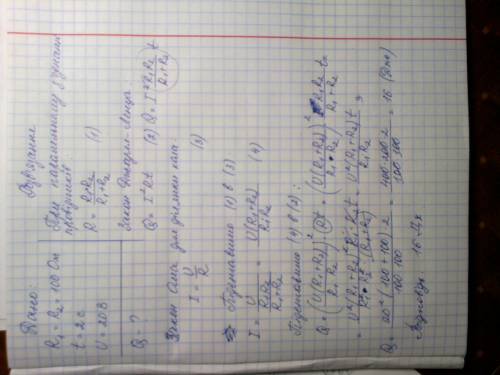 Дано:
R₁ = R₂ = 100 Ом
t = 2 с
U = 20 В
Q = ?
Розв'язання
При паралельному з'єднанні
провідників:
R = R₁R₂ / (R₁ + R₂) (1)
Закон Джоуля-Ленца
Q = I²Rt (2) Q = I² R₁R₂ / (R₁ + R₂) t
Закон Ома для ділянки кола:
I = U / R (3)
Підставимо (1) в (3)
I = U / (R₁R₂ / (R₁ + R₂)) = U(R₁ + R₂) / R₁R₂ (4)
Підставимо (4) в (2):
Q = (U(R₁ + R₂) / R₁R₂)² Rt = (U(R₁ + R₂) / R₁R₂)² R₁R₂ / (R₁ + R₂) t =
= U²(R₁ + R₂)² R₁R₂ t / R₁²R₂² (R₁ + R₂) = U²(R₁ + R₂) t / R₁R₂
Q = 20² (100 + 100) 2 / 100·100 = 400·200·2 / 100·100 = 16 (Дж)
Відповідь: 16 Дж